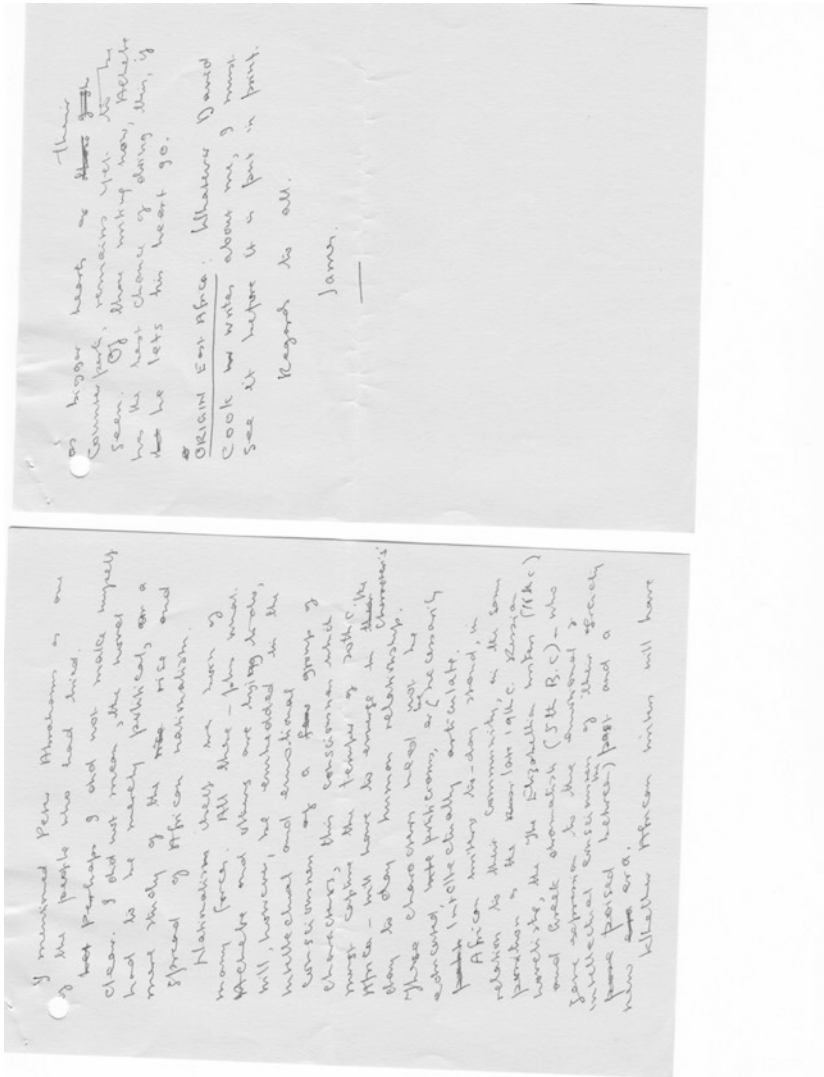 I mentioned Peter Abrahams as one
of the people who had tried.
Perhaps I did not make myself
clear. I did not mean, the novel
had to be merely political, or a
mere study of the rise and
spread of African nationalism.
Nationalism itself was born of
many forces. All these – plus what
Achebe and others are trying to do,
will, however, be embedded in the
intellectual and emotional
consciousness of a group of
characters; this consciousness which
must capture the temper of 20th c.
Africa – will have to emerge in character's
day to day human relationship.
These characters need not be
educated, be politicians, or necessarily
intellectually articulate.
African writers to-day stand, in
relation to their community, in the same
position as the late 19th c. Russian
novelists, the Elizabethan writers (16th c)
and Greek dramatists (5th B.C) – who
gave expression to the emotional &
intellectual consciousness of their society
poised between the past and a
new era. Whether African writers will have
as bigger hearts as their
counterparts, remains yet to be
seen. Of those writing now, Achebe
has the best chance of doing this, if
he lets his heart go.
ORIGIN East Africa: Whatever David
Cook writes about me, I must
see it before it is put in print.
Regards to all.
James.